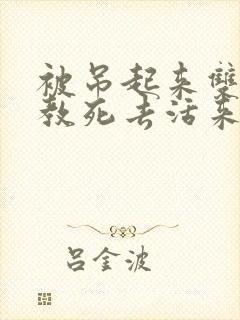 被吊起来双
教死去活来
吕金波